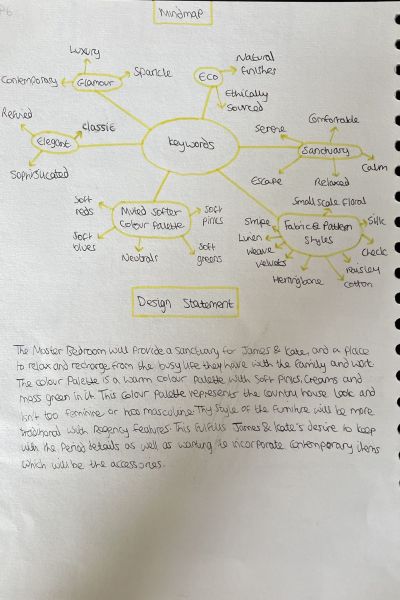 P6
Mindmap
Luxury
Contemporary
Glamour
Sparcle
Eco
Natural
finishes
Ethically
Sourced
Refined
classic
Elegant
Sophisticated
Keywords
Serene
Comfortable
Sanctuary
Escape
Relaxed
Calm
Soft
reds
Muted Softer
Colour Palette
Soft
pinks
Soft
blues
Neutrals
Soft
greens
Small scale Floral
Stripe
Fabric & Pattern
Styles
Silk
Linen
Weave
Velvets
Check
Herringbone
Paisley
cotton
Design Statement
The Master Bedroom will Provide a sanctuary for James & Kate, and a Place
to relax and recharge from the busy life they have with the family and work.
The colour Palette is a warm colour Palette with Soft Pinks, Creams and
moss green in it. This colour Palette represents the country house look and
isn't too feminine or too masculine. The Style of the furniture will be more
traditional with Regency features. This fulfills James & Kate's desire to keep
with the Period details as well as wanting to incorporate contemporary items
which will be the accessories.